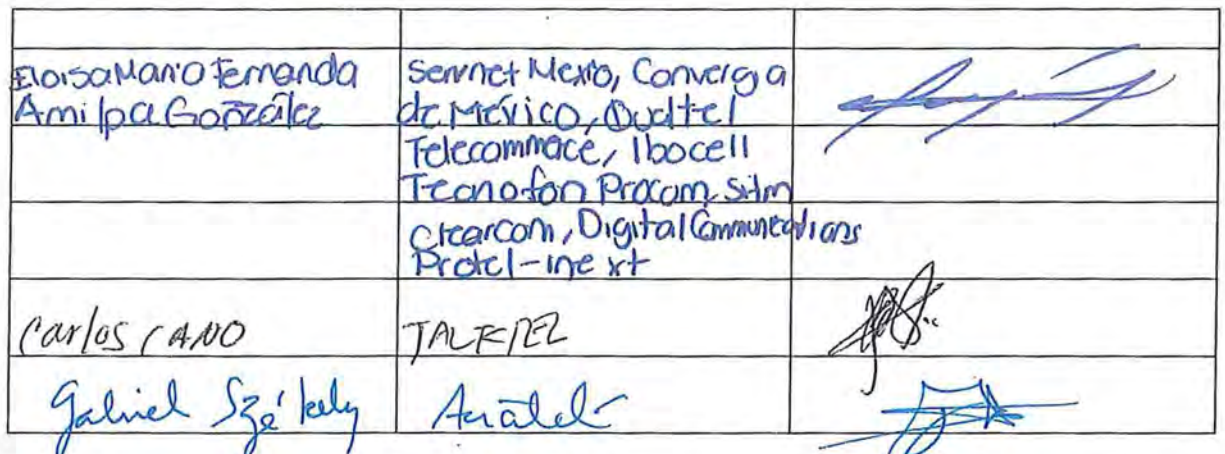 Eloisa Maria Fernanda
Amilpa González
Servnet Mexio, Converg a
de México, Qualtel
Telecommace, Ibocell
Tecnofon Procom, Sitm
Crearcom, Digital Communications
Protel-inext
Carlos CANO
Gabriel Székely
Anatel